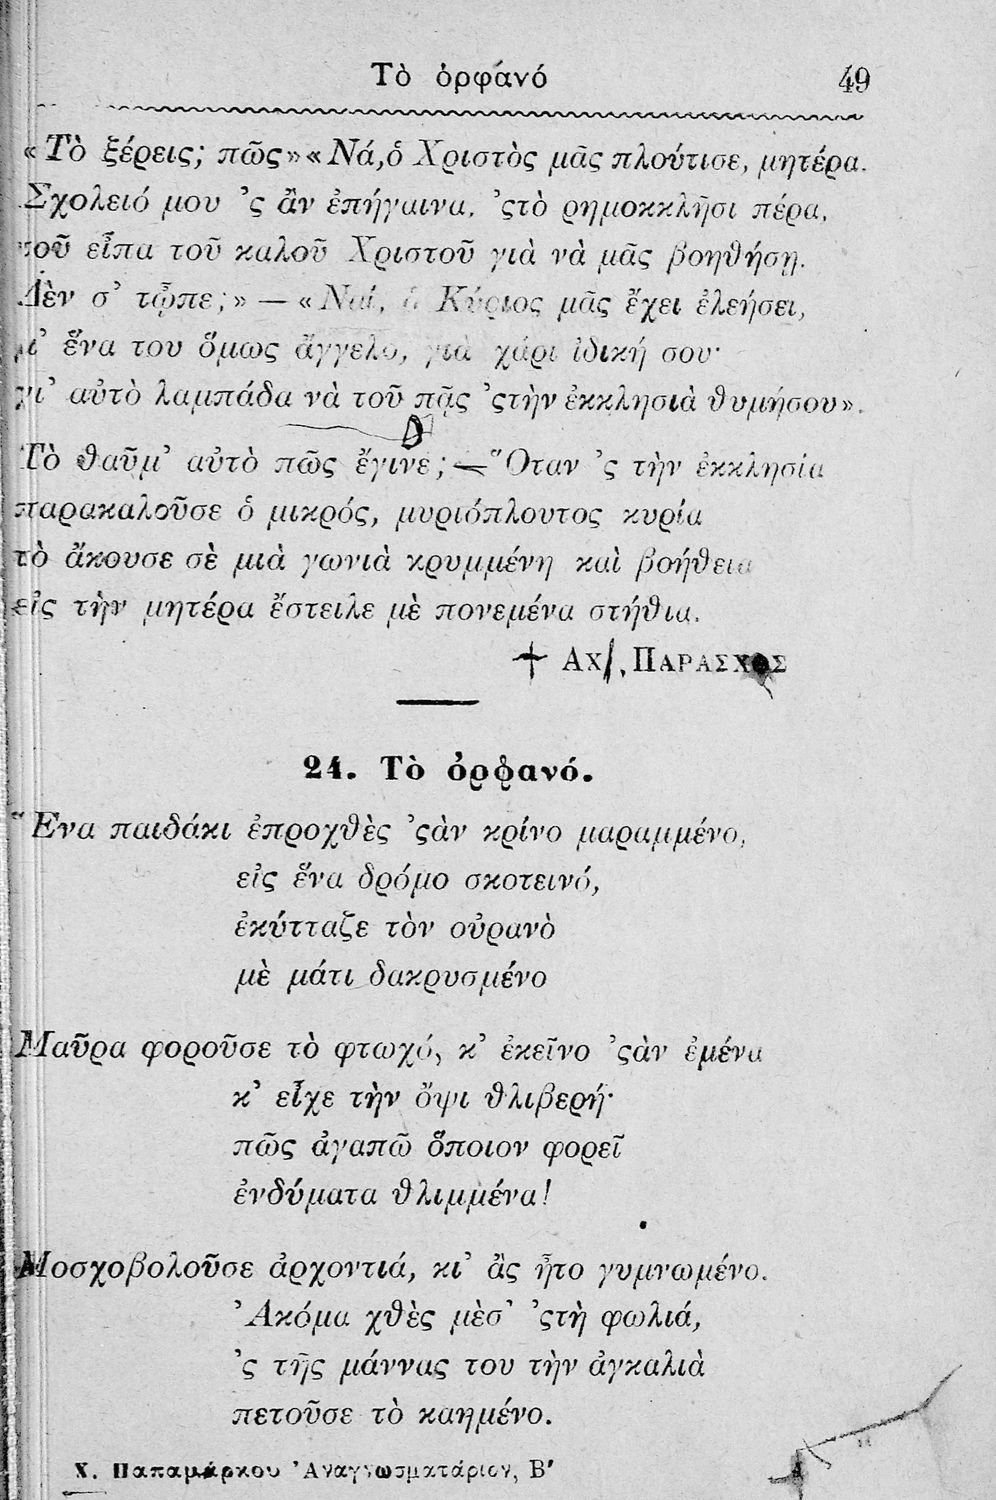 Τὸ ὀρφανό 49
«Τὸ ξέρεις; πῶς» «Νά, ὁ Χριστὸς μᾶς πλούτισε, μητέρα.
Σχολειό μου 'ς ἂν ἐπήγαινα, 'ςτὸ ρημοκκλῆσι πέρα,
τοῦ εἶπα τοῦ καλοῦ Χριστοῦ γιὰ νὰ μᾶς βοηθήσῃ.
Δὲν σ' τὦπε;» — «Ναί, ὁ Κύριος μᾶς ἔχει ἐλεήσει,
μ' ἕνα του ὅμως ἄγγελο, γιὰ χάρι ἰδική σου·
γι' αὐτὸ λαμπάδα νὰ τοῦ πᾷς 'ςτὴν ἐκκλησιὰ θυμήσου».
Τὸ θαῦμ' αὐτὸ πῶς ἔγινε; — Ὅταν 'ς τὴν ἐκκλησία
παρακαλοῦσε ὁ μικρός, μυριόπλουτος κυρία
τὸ ἄκουσε σὲ μιὰ γωνιὰ κρυμμένη καὶ βοήθεια
εἰς τὴν μητέρα ἔστειλε μὲ πονεμένα στήθια.
† ΑΧ. ΠΑΡΑΣΧΟΣ
24. Τὸ ὀρφανό.
Ἕνα παιδάκι ἐπροχθὲς 'ςὰν κρίνο μαραμμένο,
εἰς ἕνα δρόμο σκοτεινό,
ἐκύτταζε τὸν οὐρανὸ
μὲ μάτι δακρυσμένο
Μαῦρα φοροῦσε τὸ φτωχό, κ' ἐκεῖνο 'ςὰν ἐμένα
κ' εἶχε τὴν ὄψι θλιβερή·
πῶς ἀγαπῶ ὅποιον φορεῖ
ἐνδύματα θλιμμένα!
Μοσχοβολοῦσε ἀρχοντιά, κι' ἂς ἦτο γυμνωμένο.
Ἀκόμα χθὲς μὲσ' 'ςτὴ φωλιά,
'ς τῆς μάννας του τὴν ἀγκαλιὰ
πετοῦσε τὸ καημένο.
Χ. Παπαμάρκου Ἀναγνωσματάριον, Β′